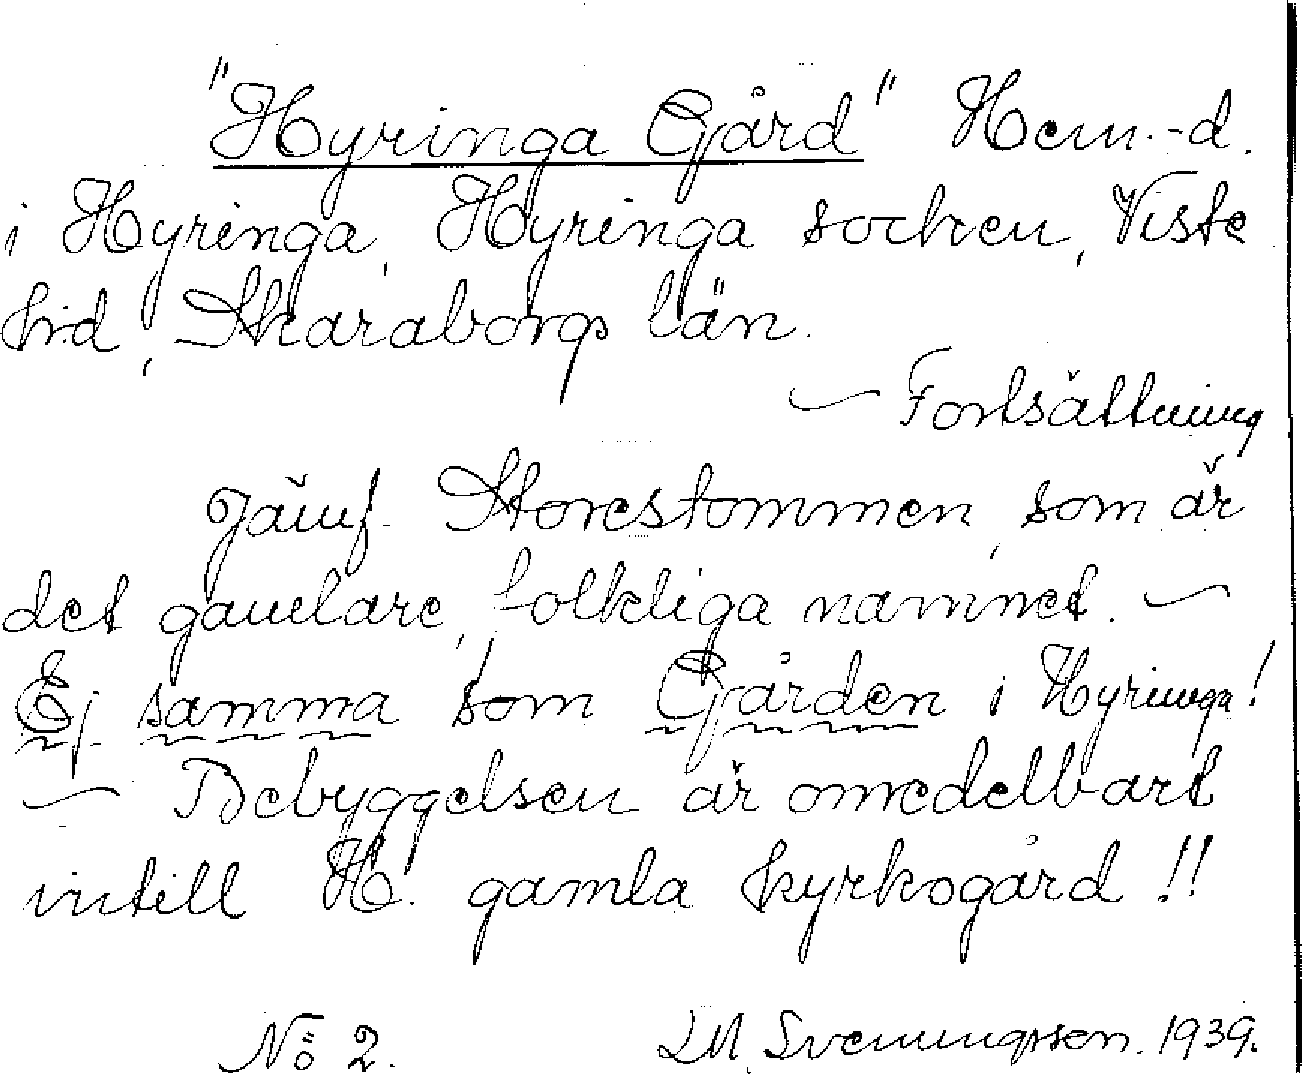 "Hyringa Gård" Hem.-d.
i Hyringa, Hyringa socken, Viste
hrd, Skaraborgs län.
— Fortsättning
Jämf. Storestommen, som är
det gamlare, folkliga namnet. —
Ej samma som Gården i Hyringa!
— Bebyggelsen är omedelbart
intill H. gamla kyrkogård!!
No 2. LM. Svenungsson. 1939.